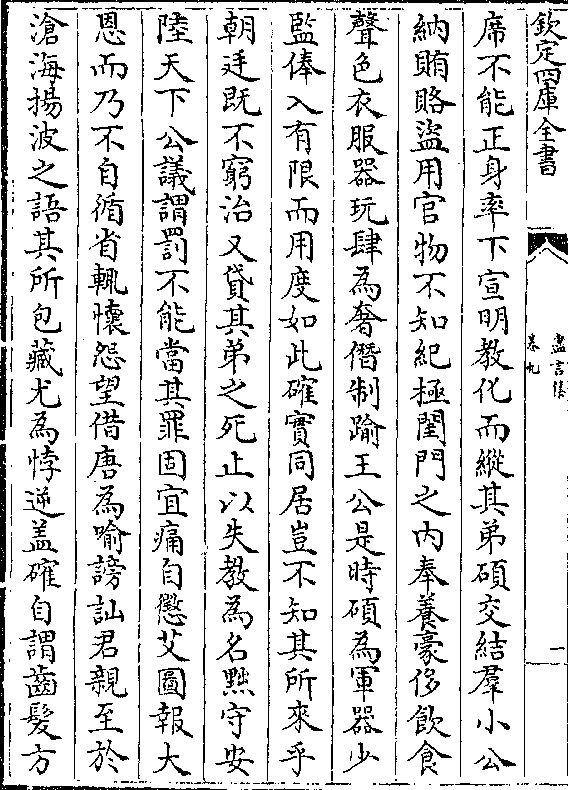 欽定四庫全書
盡言集
卷九
一
席不能正身率下宣明教化而縱其弟碩交結羣小公
納賄賂盜用官物不知紀極閨門之内奉養豪侈飲食
聲色衣服器玩肆為奢僭制踰王公是時碩為軍器少
監俸入有限而用度如此確實同居豈不知其所來乎
朝廷既不窮治又貸其弟之死止以失教為名黜守安
陸天下公議謂罰不能當其罪固宜痛自懲艾圖報大
恩而乃不自循省輒懷怨望借唐為喻謗訕君親至於
滄海揚波之語其所包藏尤為悖逆盖確自謂齒髮方